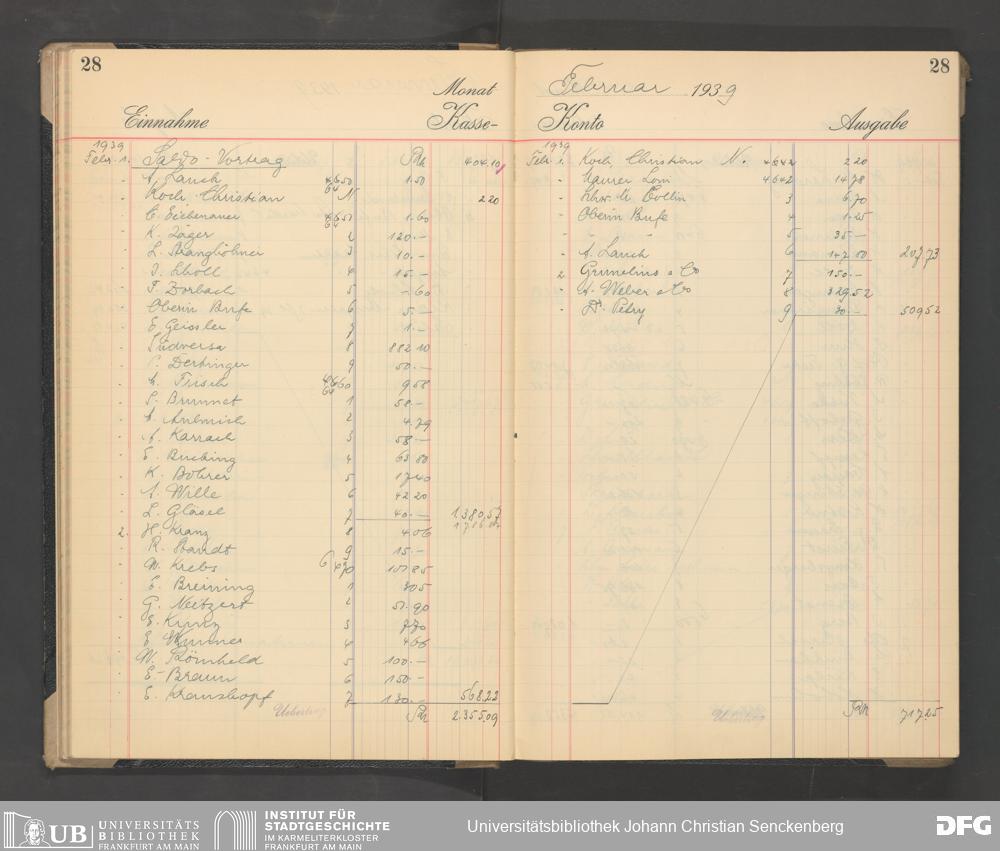 28
Monat
Einnahme Kasse-
1939
Febr. 1. Saldo-Vortrag RM 404.10
" A. Lauch 4650 1.50
" Koch Christian N. 2 20
" C. Eichenauer 4651 1.60
" K. Jäger 2 120.-
" L. 3 10.-
" J. Scholl 4 15.-
" F. Dorbach 5 -.60
" Oberin Bufe 6 5.-
" E. Geissler 7 1.-
" Südversa 8 882 10
" Derbinger 9 50.-
" A. Frisch 4660 9 58
" S. Brunnet 1 58.-
" A. 2 4.79
" A. Karrach 3 58.-
" E. Bucking 4 63 80
" K. Bohrer 5 17.40
" A. Wille 6 42 20
" L. Gläsel 7 40.- 1.380,57
2. H. Kranz 8 4 06
" R. Staudt 9 15.-
" W. Krebs 6470 101 85
" E. Breining 1 3 05
" G. Neitzert 2 51.90
" E. Kunz 3 7.70
" E. 4 4 66
" W. Römheld 5 100.-
" E. Braun 6 150.-
" E. Kranzkopf 7 130.- 568.22
Uebertrag RM 2.355.09
28
Februar 1939
Konto Ausgabe
1939
Febr. 1. Koch Christian N. 4642 2 20
" Maurer Loni 4642 14 78
" Collin 3 6.70
" Oberin Bufe 4 1.25
" " " 5 35.-
" A. Lauch 6 147.80 207,73
2 Grunelius & Co 7 150.-
" A. Weber & Co 8 329,52
" Dr. Petry 9 30.- 509 52
RM 717,25
UB UNIVERSITÄTS
BIBLIOTHEK
FRANKFURT AM MAIN
INSTITUT FÜR
STADTGESCHICHTE
IM KARMELITERKLOSTER
FRANKFURT AM MAIN
Universitätsbibliothek Johann Christian Senckenberg
DFG